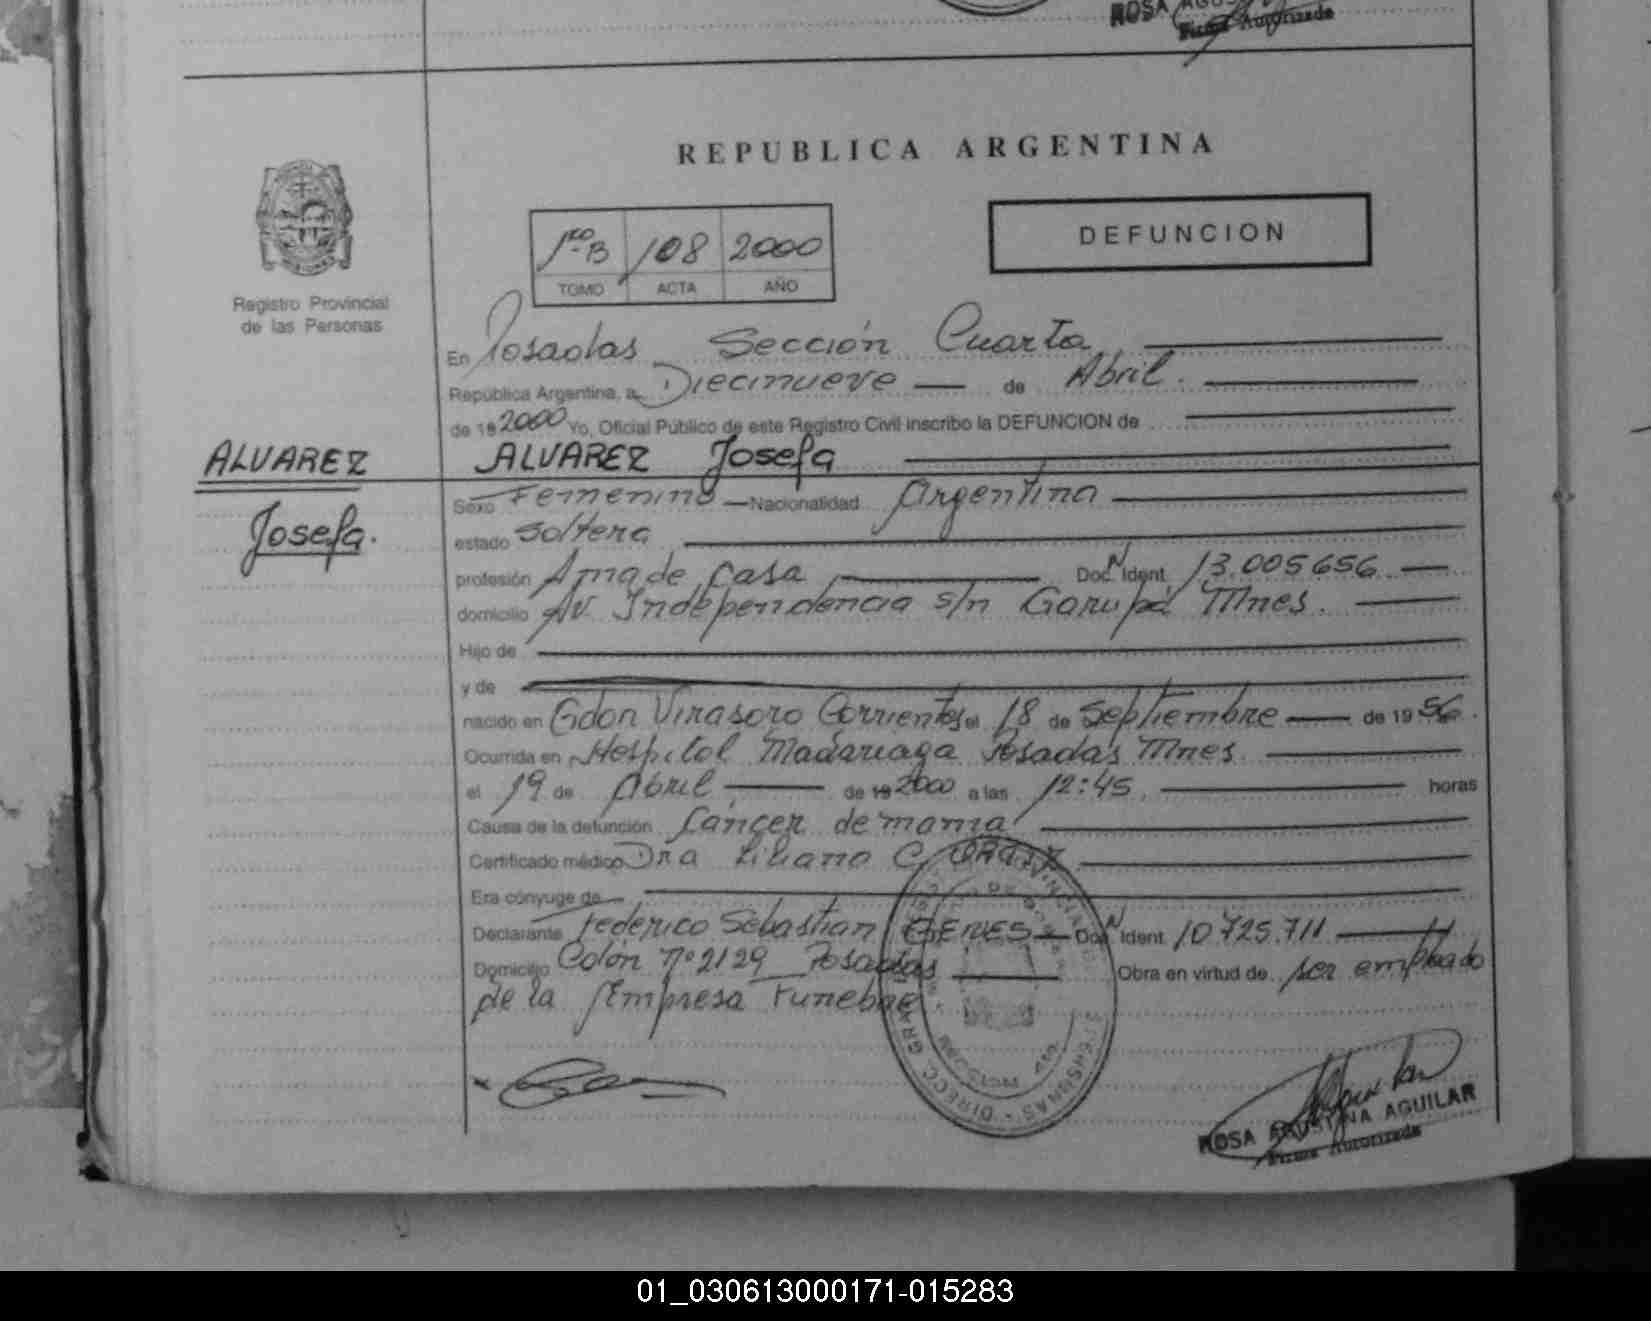 ROSA
Firma Autorizada
REPUBLICA ARGENTINA
1ro B 108 2000
TOMO ACTA AÑO
DEFUNCION
Registro Provincial
de las Personas
En Posadas Sección Cuarta
República Argentina, a Diecinueve de Abril
de 19 2000 Yo, Oficial Público de este Registro Civil inscribo la DEFUNCION de
ALVAREZ ALVAREZ Josefa
Josefa.
Sexo Femenino Nacionalidad Argentina
estado Soltera
profesión Ama de Casa Doc N Ident. 13.005656
domicilio Av. Independencia s/n Garupá Mnes.
Hijo de
y de
nacido en Gdor Virasoro Corrientes el 18 de Septiembre de 19 56.
Ocurrida en Hospital Madariaga Posadas Mnes.
el 19 de Abril de 19 2000 a las 12:45. horas
Causa de la defunción Cáncer de mama
Certificado médico Dra Liliana C.
Era cónyuge de
Declarante Federico Sebastian GENES Doc N Ident. 10.725.711
Domicilio Colón Nº 2129 Posadas Obra en virtud de ser empleado
de la Empresa Funebre
ROSA AGUSTINA AGUILAR
Firma Autorizada
01_030613000171-015283